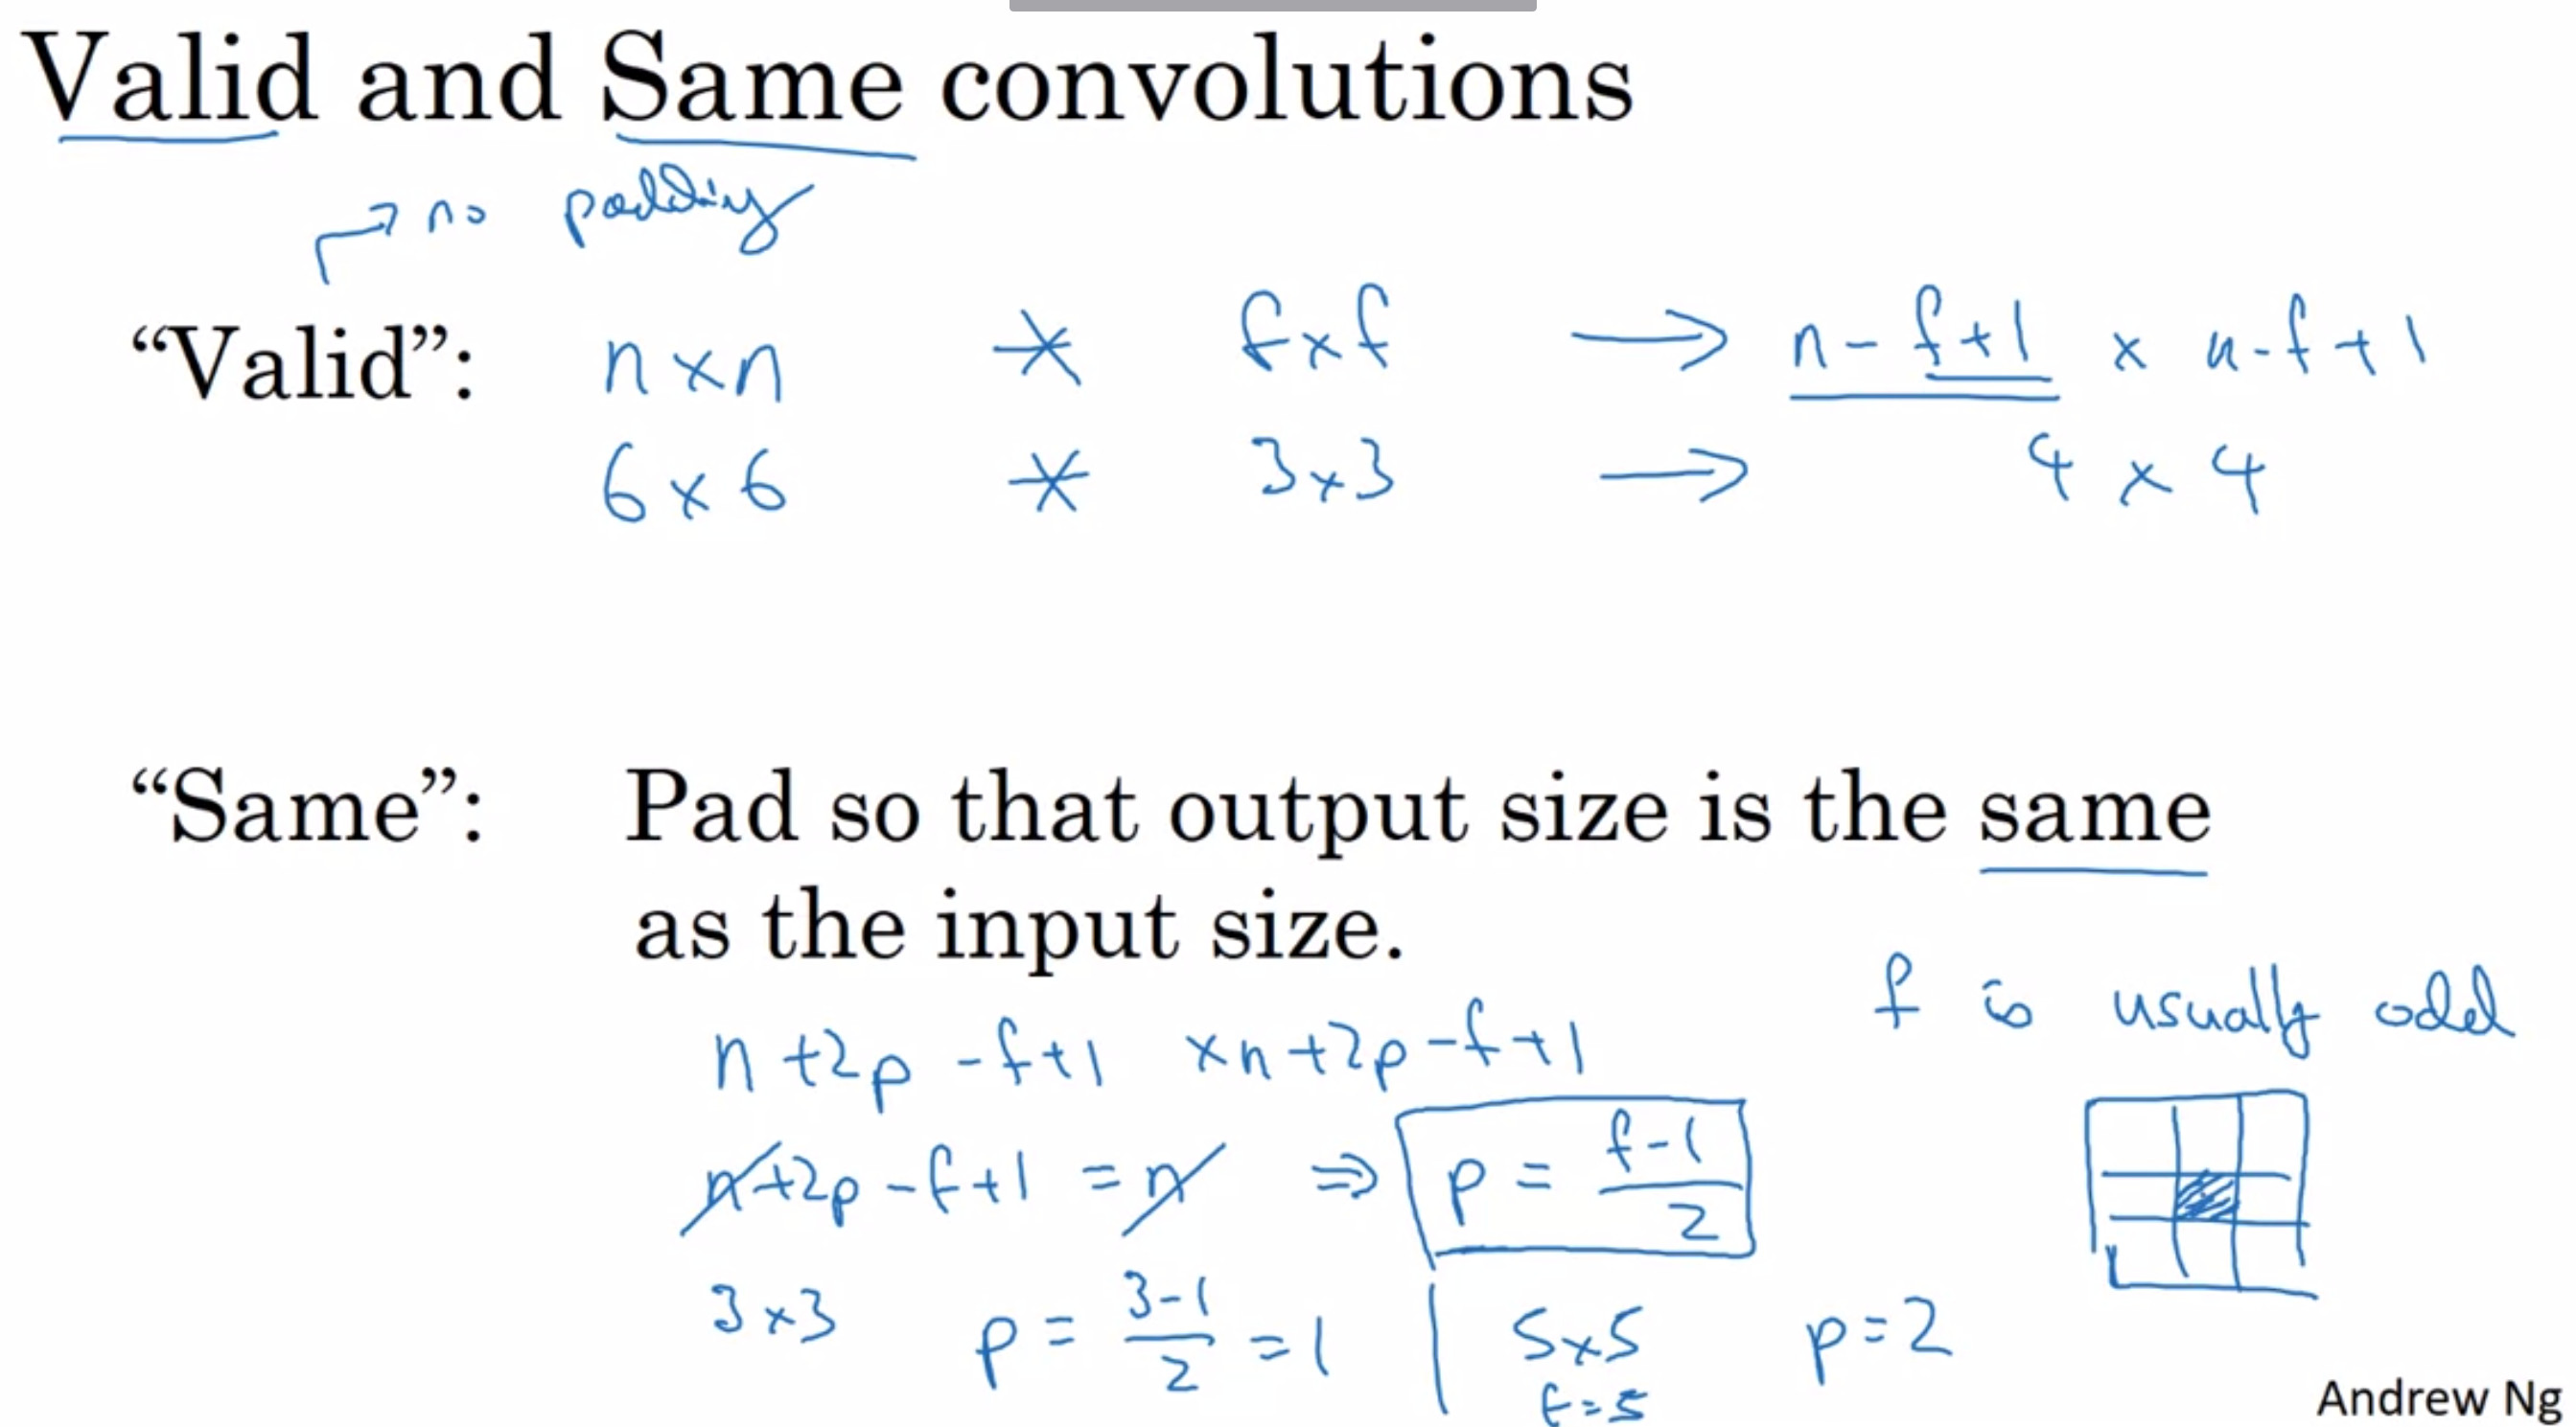 Valid and Same convolutions
→ no padding
“Valid”: n×n * f×f → n-f+1 × n-f+1
6×6 * 3×3 → 4×4
“Same”: Pad so that output size is the same
as the input size.
f is usually odd
n+2p-f+1 ×n+2p-f+1
n+2p-f+1 = n ⇒ p = (f-1)/2
3×3 p = (3-1)/2 = 1 | 5×5 p=2
f=5
Andrew Ng